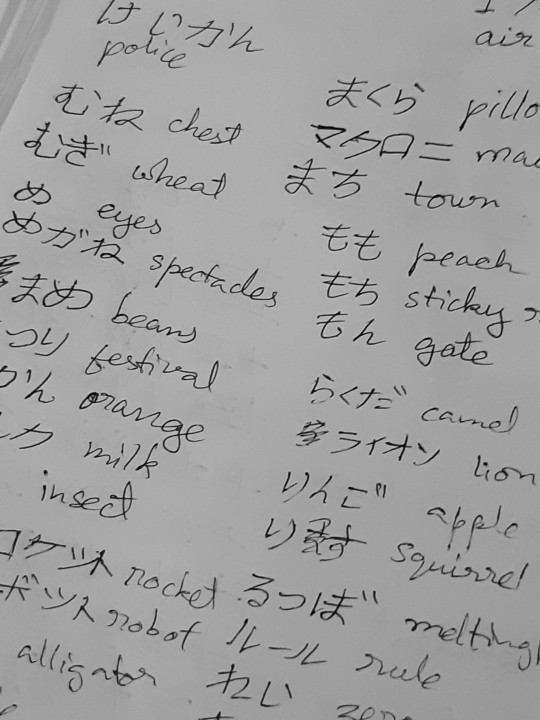 けいかん
police
air
むね chest
むぎ wheat
め eyes
めがね spectacles
まめ beans
つり festival
かん orange
ルク milk
insect
ロケット rocket
ボット robot
alligator
まくら
マクロニ
まち town
もも peach
もち sticky
もん gate
らくだ camel
ライオン lion
りんご apple
りす squirrel
るつぼ
ルール rule
れい zero